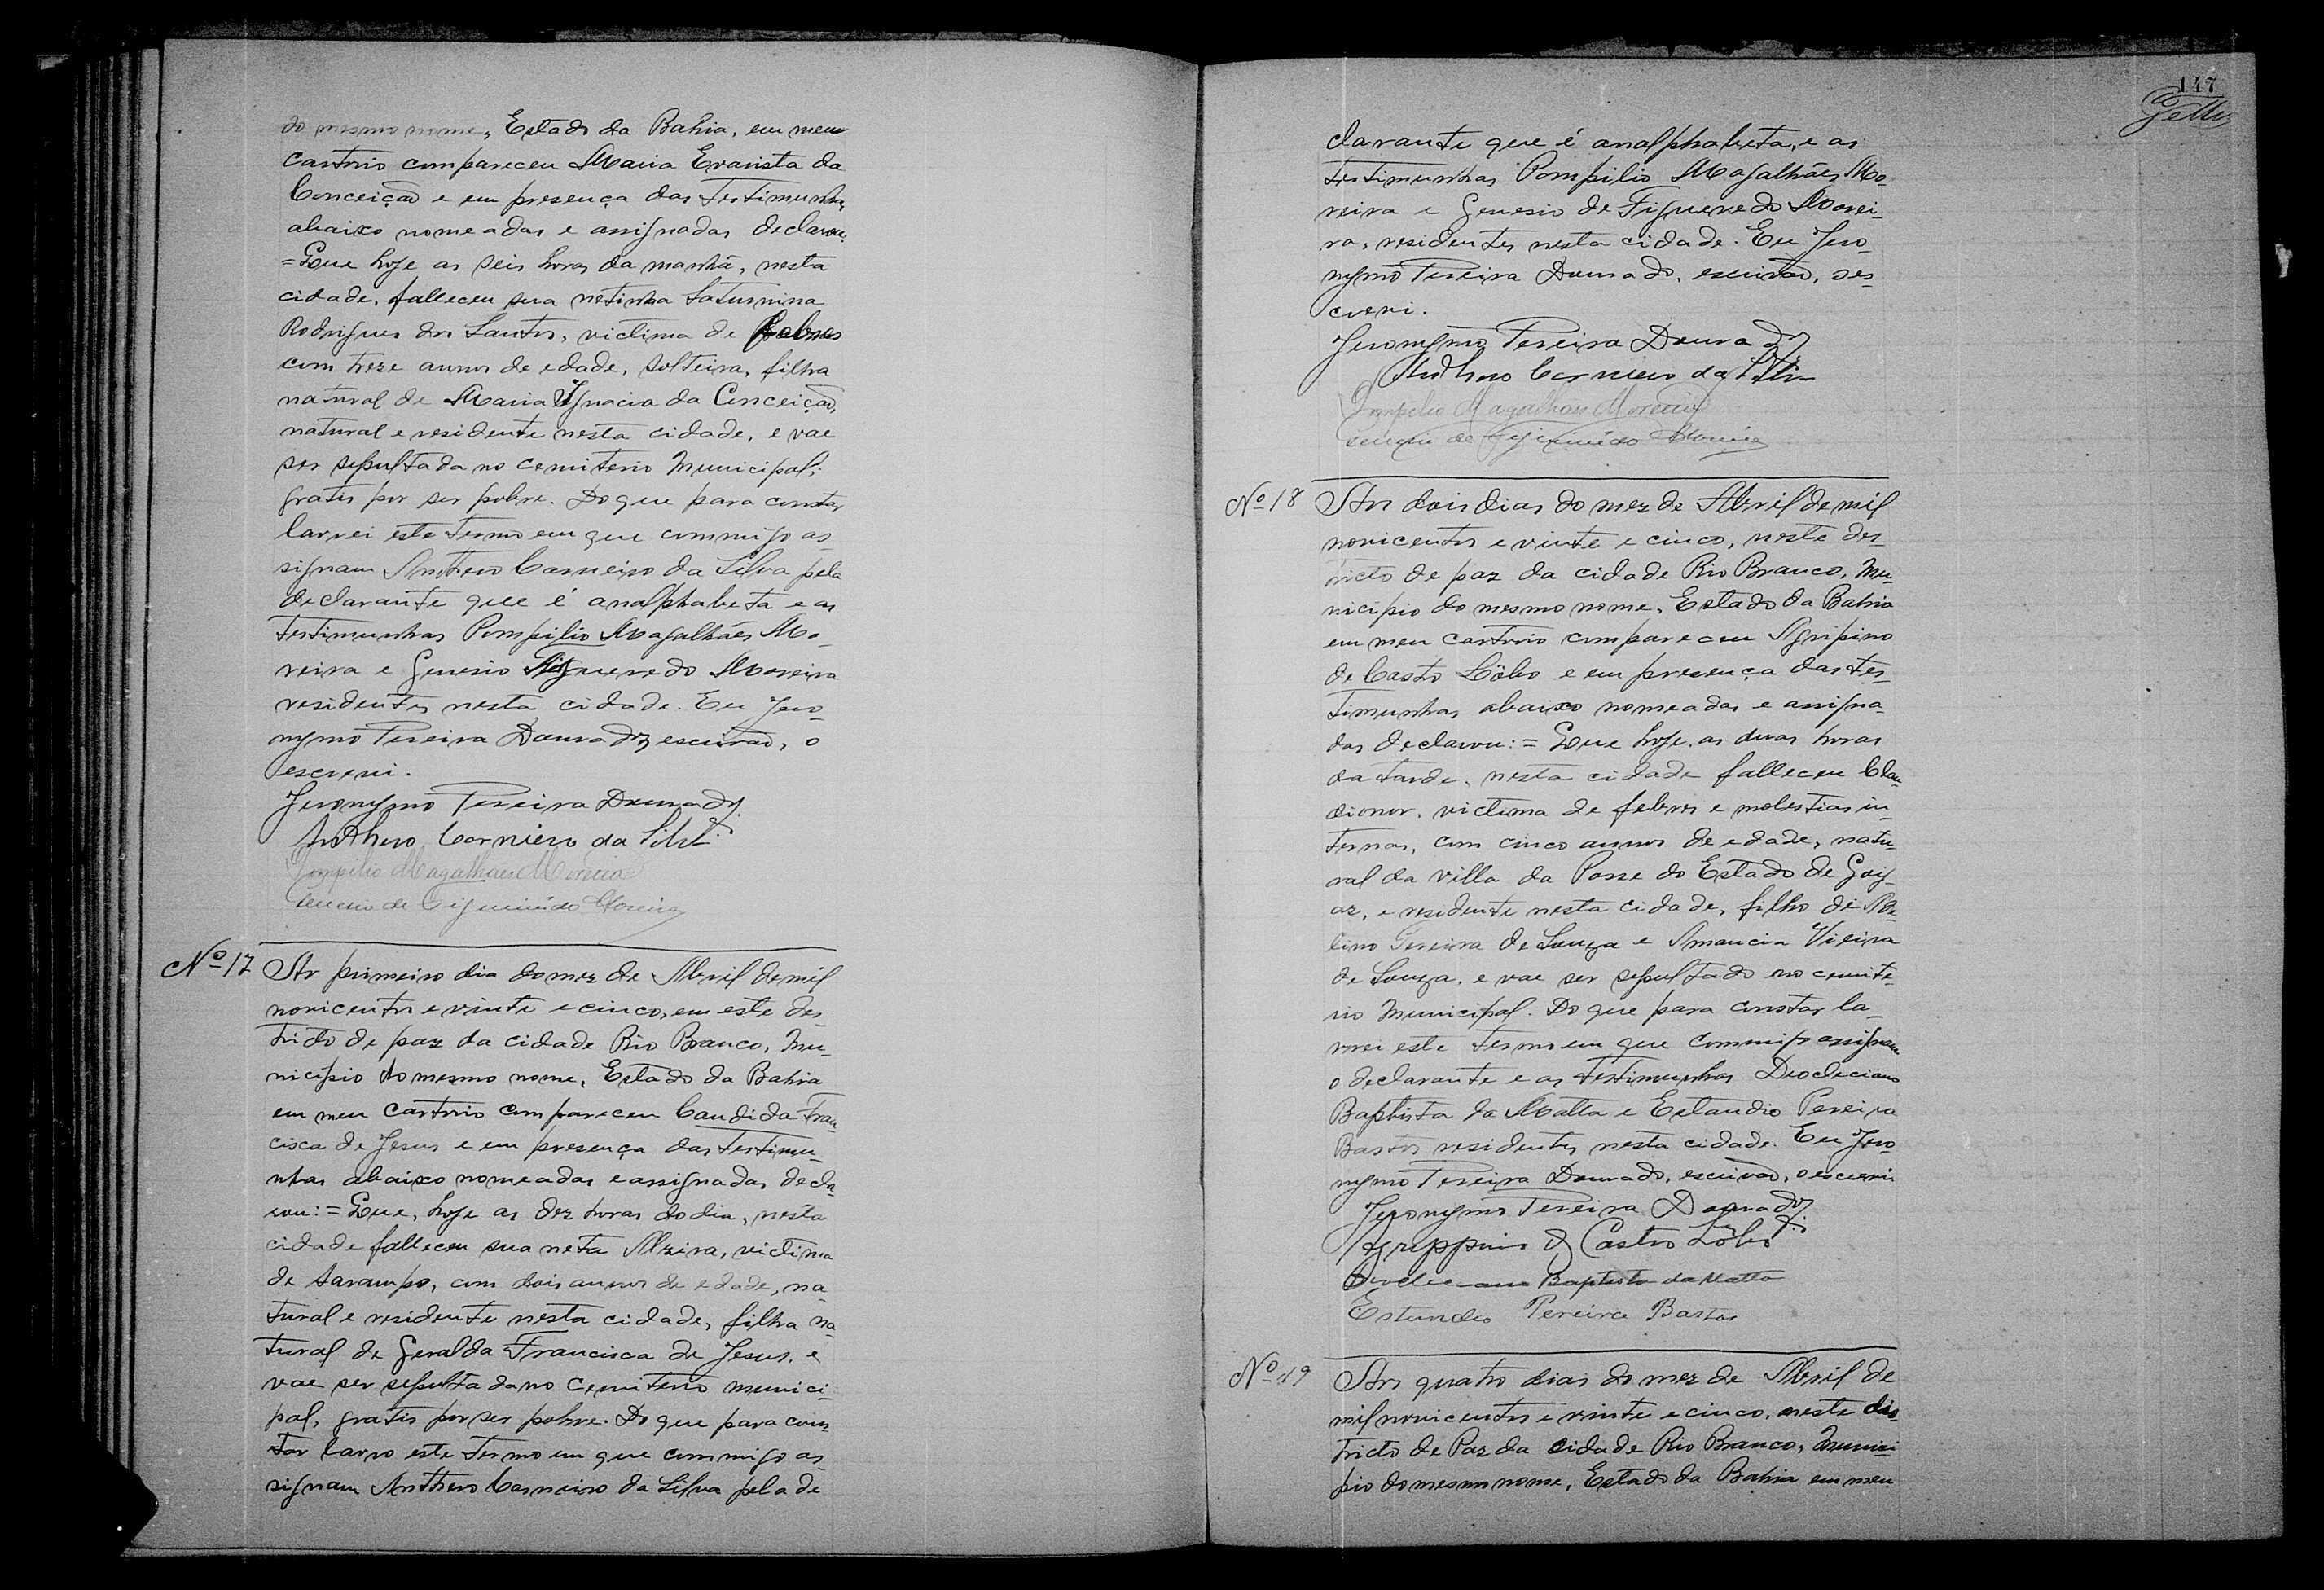 do mesmo nome, Estado da Bahia, em meu
cartorio compareceu Maria Evarista da
Conceição e em presença das testimunhas
abaixo nomeadas e assignadas declarou:
= Que hoje as seis horas da manhã, nesta
cidade, falleceu sua netinha Saturnina
Rodrigues dos Santos, victima de febres
com treze annos de edade, solteira, filha
natural de Maria Ignacia da Conceição,
natural e residente nesta cidade, e vae
ser sepultada no cemiterio Municipal,
gratis por ser pobre. Do que para constar
lavrei este termo em que commigo as-
signam Anthero Carneiro da Silva pela
declarante que é analphabeta e as
testimunhas Pompilio Magalhães Mo-
reira e Genesio Figueredo Moreira
residentes nesta cidade. Eu Jero-
nymo Pereira Dourado, escrivão, o
escrevi.
Jeronymo Pereira Dourado
Anthero Carneiro da Silva
Pompilio Magalhães Moreira
Genesio de Figueirêdo Moreira
No 17 Ao primeiro dia do mez de Abril de mil
novicentos e vinte e cinco, em este des-
tricto de paz da cidade Rio Branco, Mu-
nicipio do mesmo nome, Estado da Bahia
em meu cartorio compareceu Candida Fran-
cisca de Jesus e em presença das testimu-
nhas abaixo nomeadas e assignadas decla-
rou: = Que, hoje as dez horas do dia, nesta
cidade falleceu sua neta Alzira, victima
de sarampo, com dois annos de edade, na-
tural e residente nesta cidade, filha na-
tural de Geralda Francisca de Jesus, e
vae ser sepultada no cemiterio munici-
pal, gratis por ser pobre. Do que para cons-
tar lavro este termo em que commigo as-
signam Anthero Carneiro da Silva pela de
147
clarante que é analphabeta, e as
testimunhas Pompilio Magalhães Mo-
reira e Genesio de Figueredo Morei-
ra, residentes nesta cidade. Eu Jero-
nymo Pereira Dourado, escrivão, oes-
crevi.
Jeronymo Pereira Dourado
Anthero Carneiro da Silva
Pompilio Magalhães Moreira
Genesio de Figueirêdo Moreira
No 18 Aos dois dias do mez de Abril de mil
novicentos e vinte e cinco, neste des-
tricto de paz da cidade Rio Branco, Mu-
nicipio do mesmo nome, Estado da Bahia
em meu cartorio compareceu Agripino
de Casto Lôbo e em presença das tes-
timunhas abaixo nomeadas e assigna-
das declarou: = Que hoje, as duas horas
da tarde, nesta cidade falleceu Clau-
dionor, victima de febres e molestias in-
ternas, com cinco annos de edade, natu-
ral da villa da Posse do Estado de Goy-
az, e residente nesta cidade, filho de
lino Pereira de Souza e Amancia Vieira
de Souza, e vae ser sepultado no cemite-
rio Municipal. Do que para constar la-
vrei este termo em que commigo assignam
o declarante e as testimunhas Deocleciano
Baptista da Matta e Estandio Pereira
Bastos residentes nesta cidade. Eu Jero-
nymo Pereira Dourado, escrivão, o escrevi.
Jeronymo Pereira Dourado
Agrippino de Castro Lôbo
Deocleciano Baptista da Matta
Estandio Pereira Bastos
No 19 Aos quatro dias do mez de Abril de
mil novicentos e vinte e cinco, neste dis-
tricto de Paz da cidade Rio Branco, Munici
pio do mesmo nome, Estado da Bahia em meu